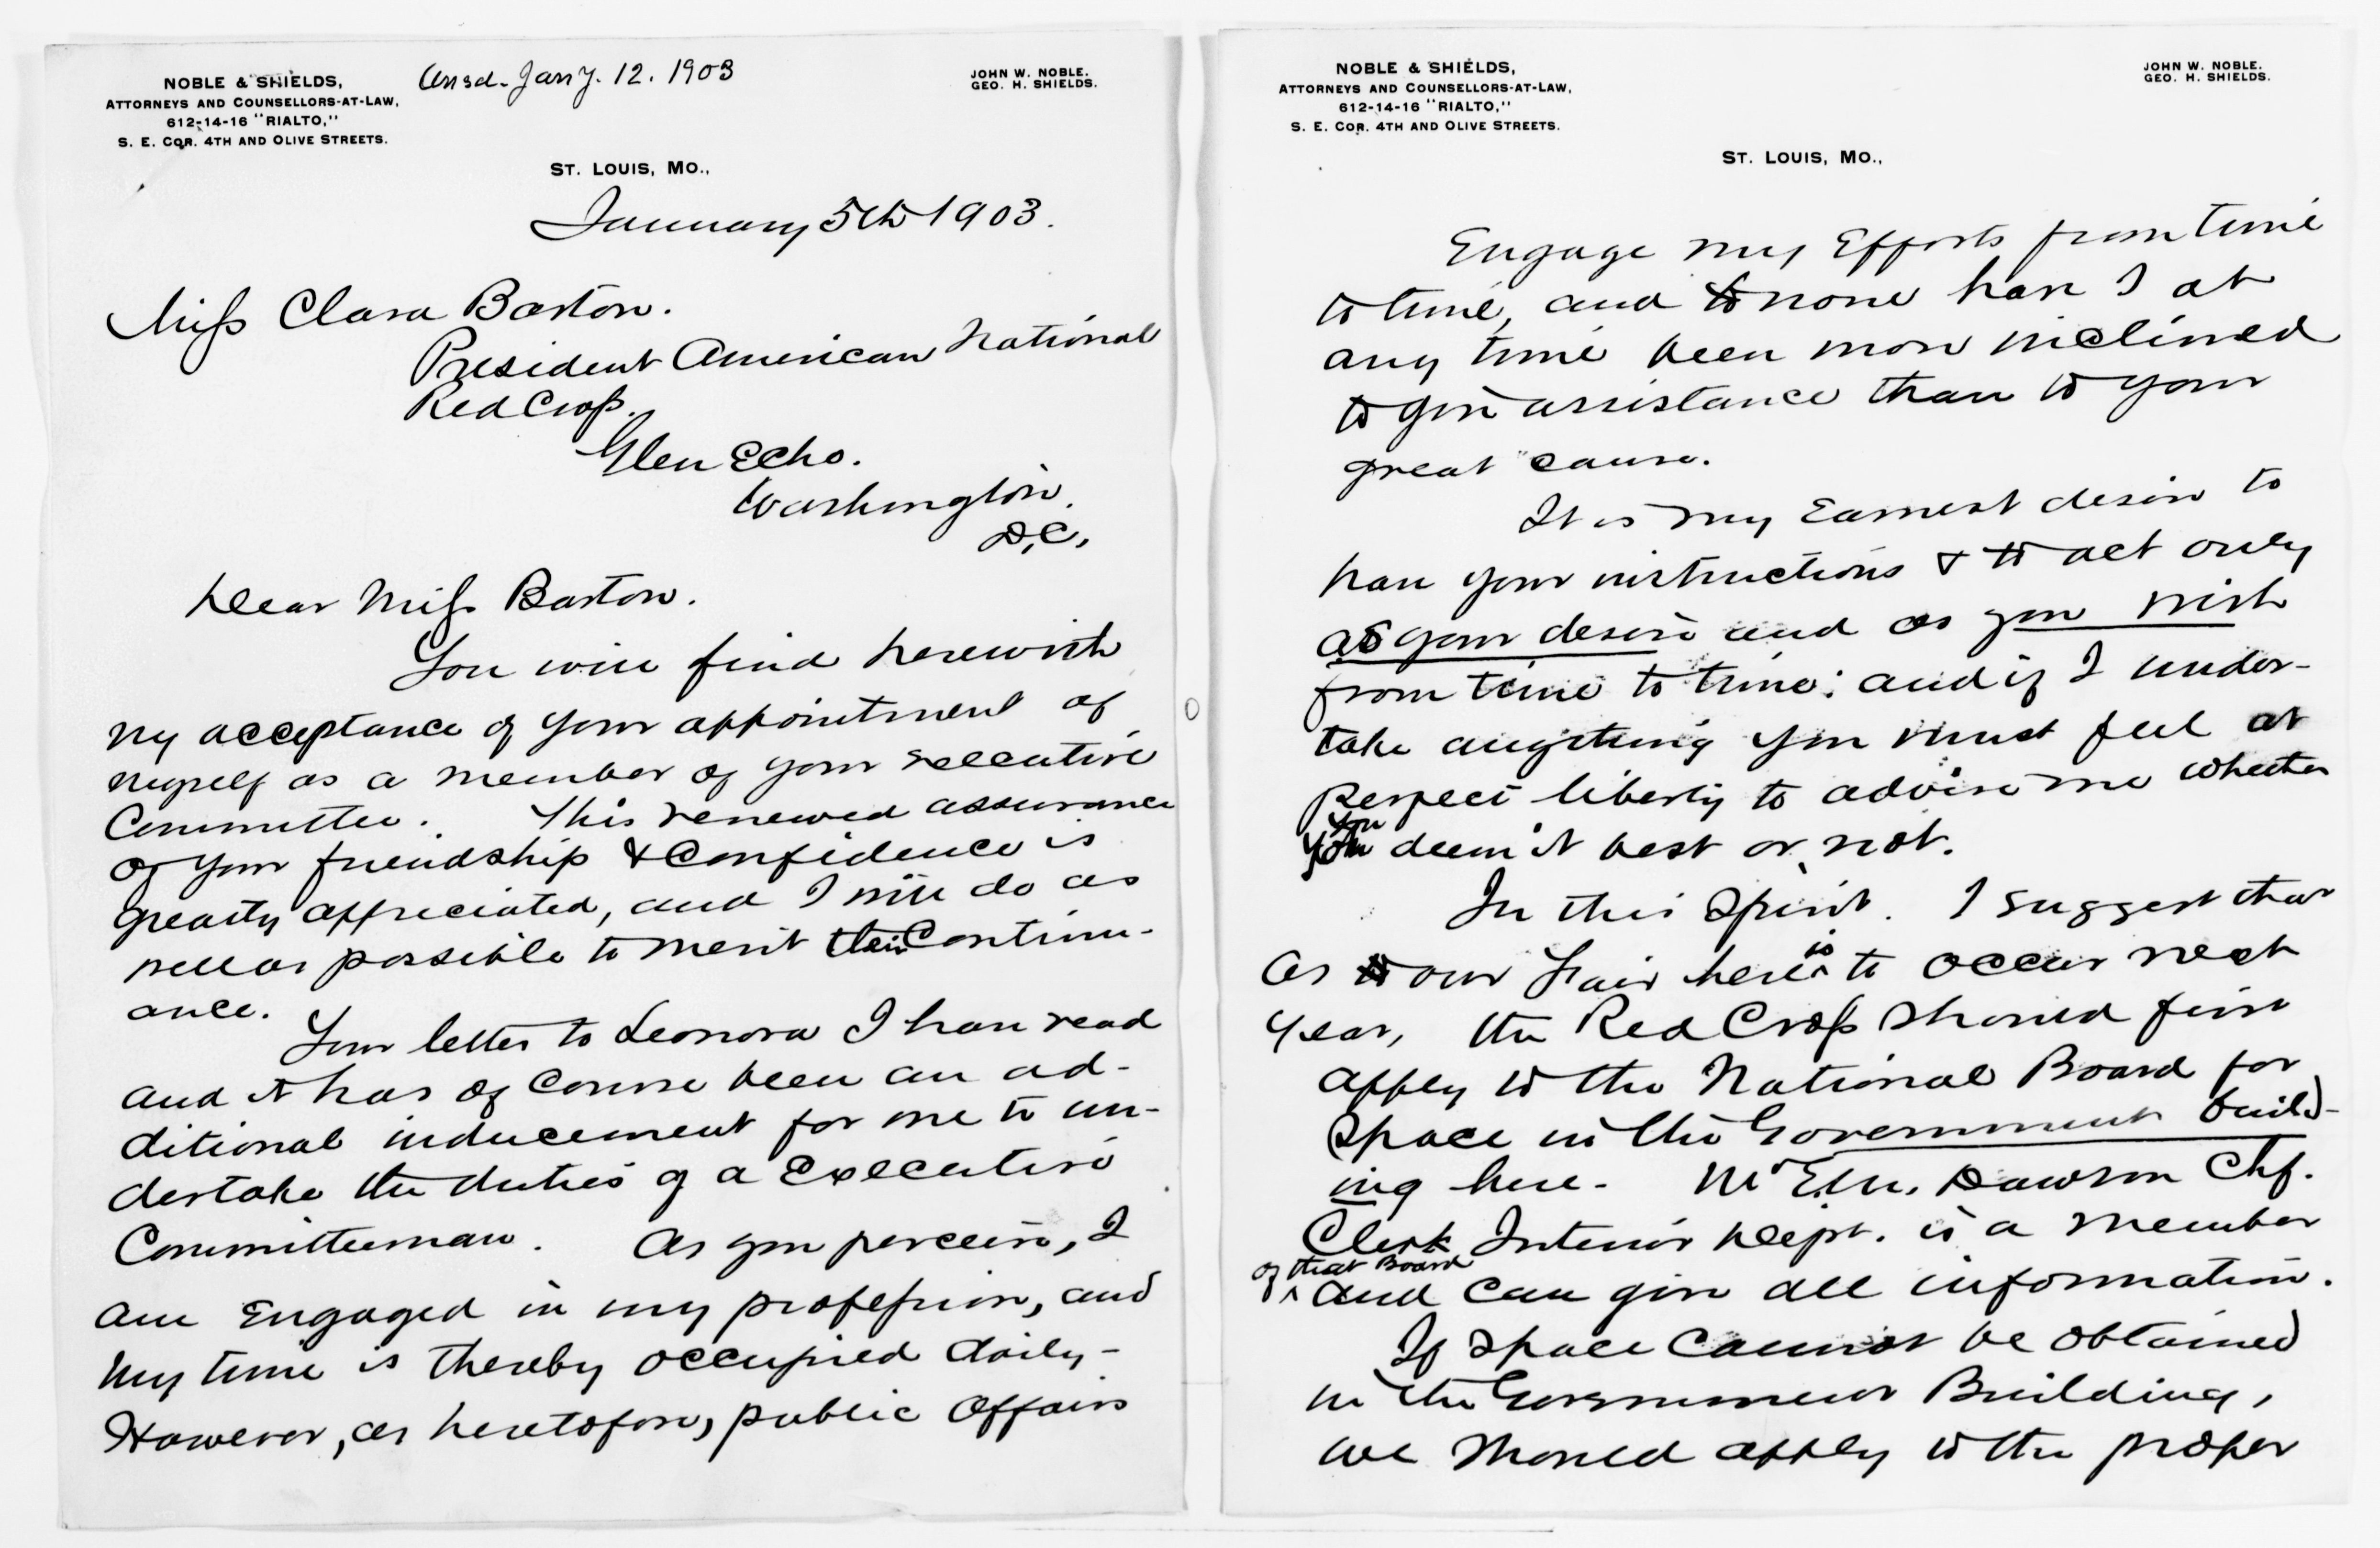 NOBLE & SHIELDS,
ATTORNEYS AND COUNSELLORS-AT-LAW,
612-14-16 "RIALTO,"
S. E. COR. 4TH AND OLIVE STREETS.
Ansd. Jany. 12. 1903
JOHN W. NOBLE.
GEO. H. SHIELDS.
ST. LOUIS, MO.,
January 5th 1903.
Miss Clara Barton.
President American National
Red Cross.
Glen Echo.
Washington.
D.C.
Dear Miss Barton.
You will find herewith
my acceptance of your appointment of
myself as a member of your executive
Committee. This renewed assurance
of your friendship & confidence is
greatly appreciated, and I will do as
well as possible to merit their Continu-
ance.
Your letter to Leonora I have read
and it has of course been an ad-
ditional inducement for me to un-
dertake the duties of a Executive
Committeeman. As you perceive, I
am Engaged in my profession, and
my time is thereby occupied daily-
However, as heretofore, public affairs
NOBLE & SHIELDS,
ATTORNEYS AND COUNSELLORS-AT-LAW,
612-14-16 "RIALTO,"
S. E. COR. 4TH AND OLIVE STREETS.
JOHN W. NOBLE.
GEO. H. SHIELDS.
ST. LOUIS, MO.,
Engage my Efforts from time
to time, and to none have I at
any time been more inclined
to give assistance than to your
great cause.
It is my Earnest desire to
have your instructions & to act only
as your desire and as you wish
from time to time: and if I under-
take anything you must feel at
perfect liberty to advise me whether
you deem it best or not.
In this spirit. I suggest that
as our Fair here is to occur next
year, the Red Cross should first
apply to the National Board for
space in the Government build-
ing here. Mr E.M. Dawson Chf.
Clerk Interior Dept. is a member
of that Board
and can give all information.
If space cannot be obtained
in the Government Building,
we should apply to the proper